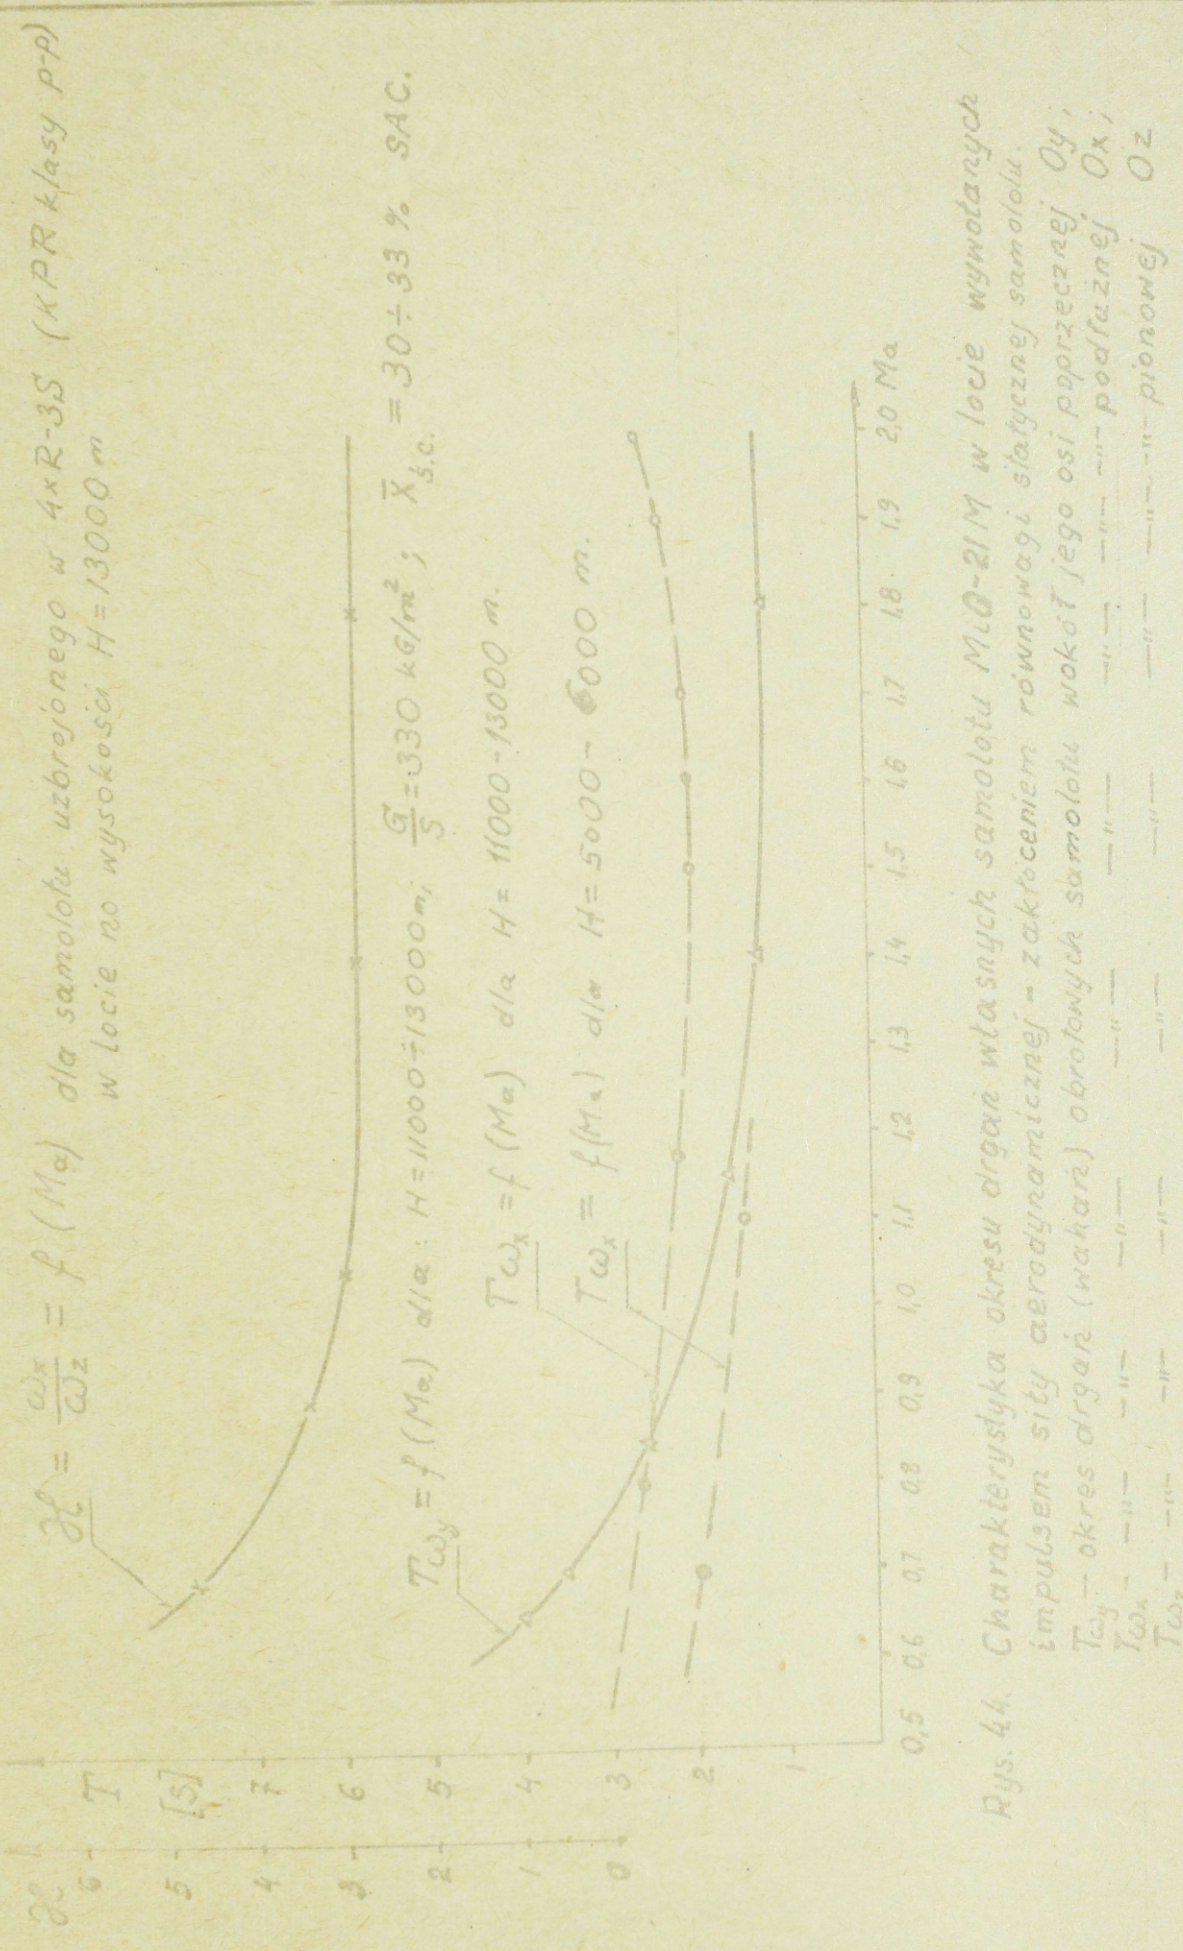 ℋ = ωx/ωz = f (Ma) dla samolotu uzbrojonego w 4xR-3S (KPR klasy p-p)
w locie no wysokości H=13000 m
ℋ T
6 [S]
5 7
4 6
3 5
2 4
1 3
0 2
1
Tωy = f (Ma) dla: H=11000÷13000m; G/S=330 kG/m²; X̄ś.c. = 30÷33 % SAC.
Tωx = f (Ma) dla H= 11000-13000 m.
Tωx = f(Ma) dla H=5000-6000 m.
0,5 0,6 0,7 0,8 0,9 1,0 1,1 1,2 1,3 1,4 1,5 1,6 1,7 1,8 1,9 2,0 Ma
Rys. 44. Charakterystyka okresu drgań własnych samolotu MiG-21M w locie wywołanych
impulsem siły aerodynamicznej - zakłóceniem równowagi statycznej samolotu.
Tωy - okres drgań (wahań) obrotowych samolotu wokół jego osi poprzecznej Oy;
Tωx - -"- -"- -"- -"- -"- -"- -"- -"- podłużnej Ox;
Tωz - -"- -"- -"- -"- -"- -"- -"- -"- pionowej Oz